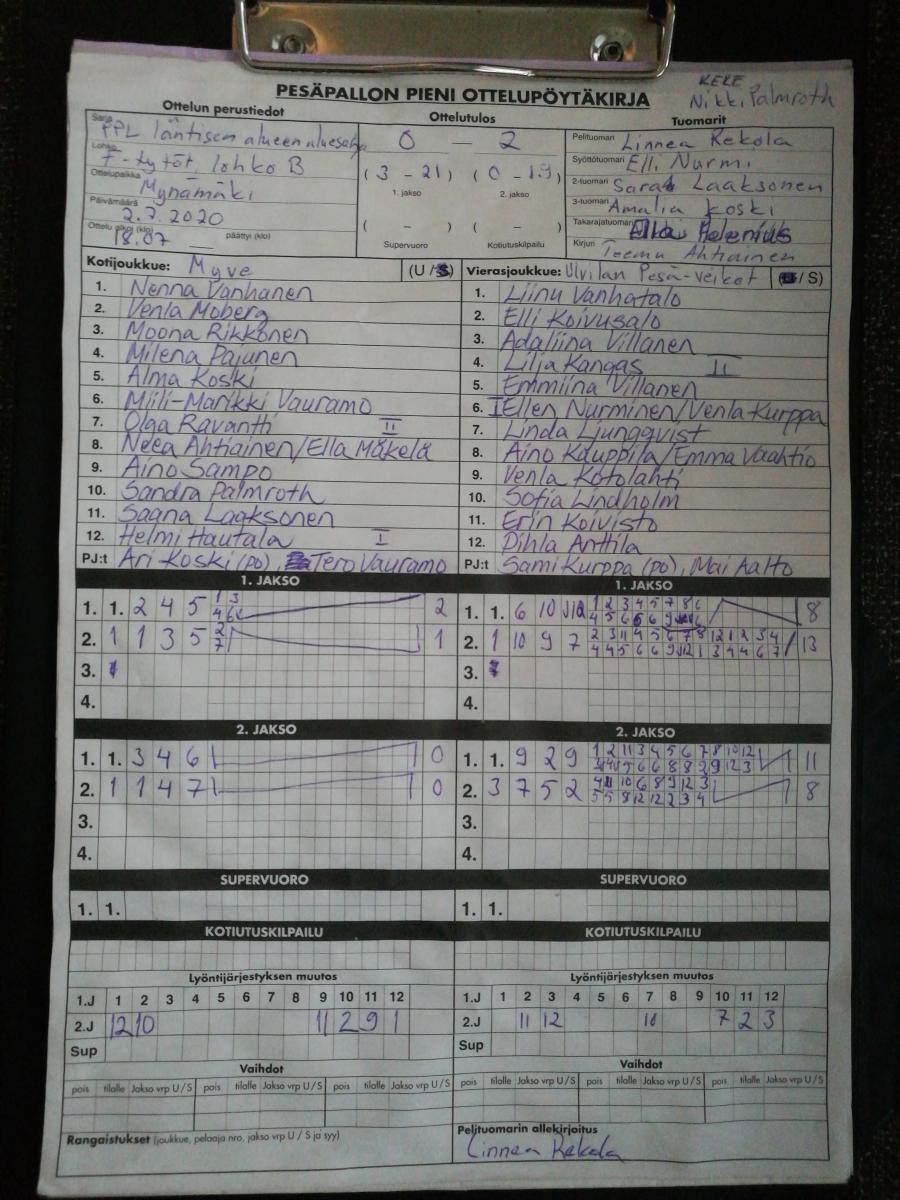 KEKE
Nikki Palmroth
PESÄPALLON PIENI OTTELUPÖYTÄKIRJA
Ottelun perustiedot
Ottelutulos
Tuomarit
Sarja FPL läntisen alueen aluesarja
Lohko F-tytöt, lohko B
Ottelupaikka Mynämäki
Päivämäärä 2.7.2020
Ottelu alkoi (klo) 18.07 päättyi (klo)
0 — 2
(3 - 21) (0 - 19)
1. jakso 2. jakso
( - ) ( - )
Supervuoro Kotiutuskilpailu
Pelituomari Linnea Rekola
Syöttötuomari Elli Nurmi
2-tuomari Sarah Laaksonen
3-tuomari Amalia Koski
Takarajatuomari Ella Helenius
Kirjuri Teemu Ahtiainen
Kotijoukkue: Myve (U / S)
1. Nenna Vanhanen
2. Venla Moberg
3. Moona Rikkonen
4. Milena Pajunen
5. Alma Koski
6. Miili-Marikki Vauramo
7. Olga Ravantti II
8. Neea Ahtiainen/Ella Mäkelä
9. Aino Sampo
10. Sandra Palmroth
11. Saana Laaksonen
12. Helmi Hautala I
PJ:t Ari Koski (po), Tero Vauramo
Vierasjoukkue: Ulvilan Pesä-Veikot (U / S)
1. Liinu Vanhatalo
2. Elli Koivusalo
3. Adaliina Villanen
4. Lilja Kangas II
5. Emmiina Villanen
6. I Ellen Nurminen/Venla Kurppa
7. Linda Ljungqvist
8. Aino Kauppila/Emma Vaahtio
9. Venla Kotolahti
10. Sofia Lindholm
11. Erin Koivisto
12. Pihla Anttila
PJ:t Sami Kurppa (po), Mai Aalto
1. JAKSO
1. 1. 2 4 5 2
2. 1 1 3 5 1
3.
4.
1. JAKSO
1. 1. 6 10 8
2. 1 10 9 7 13
3.
4.
2. JAKSO
1. 1. 3 4 6 0
2. 1 1 4 7 0
3.
4.
2. JAKSO
1. 1. 9 2 9 11
2. 3 7 5 2 8
3.
4.
SUPERVUORO
1. 1.
SUPERVUORO
1. 1.
KOTIUTUSKILPAILU
KOTIUTUSKILPAILU
Lyöntijärjestyksen muutos
1.J 1 2 3 4 5 6 7 8 9 10 11 12
2.J 12 10 11 2 9 1
Sup
Lyöntijärjestyksen muutos
1.J 1 2 3 4 5 6 7 8 9 10 11 12
2.J 11 12 10 7 2 3
Sup
Vaihdot
pois tilalle Jakso vrp U / S pois tilalle Jakso vrp U / S pois tilalle Jakso vrp U / S
Vaihdot
pois tilalle Jakso vrp U / S pois tilalle Jakso vrp U / S pois tilalle Jakso vrp U / S
Rangaistukset (joukkue, pelaaja nro, jakso vrp U / S ja syy)
Pelituomarin allekirjoitus
Linnea Rekola